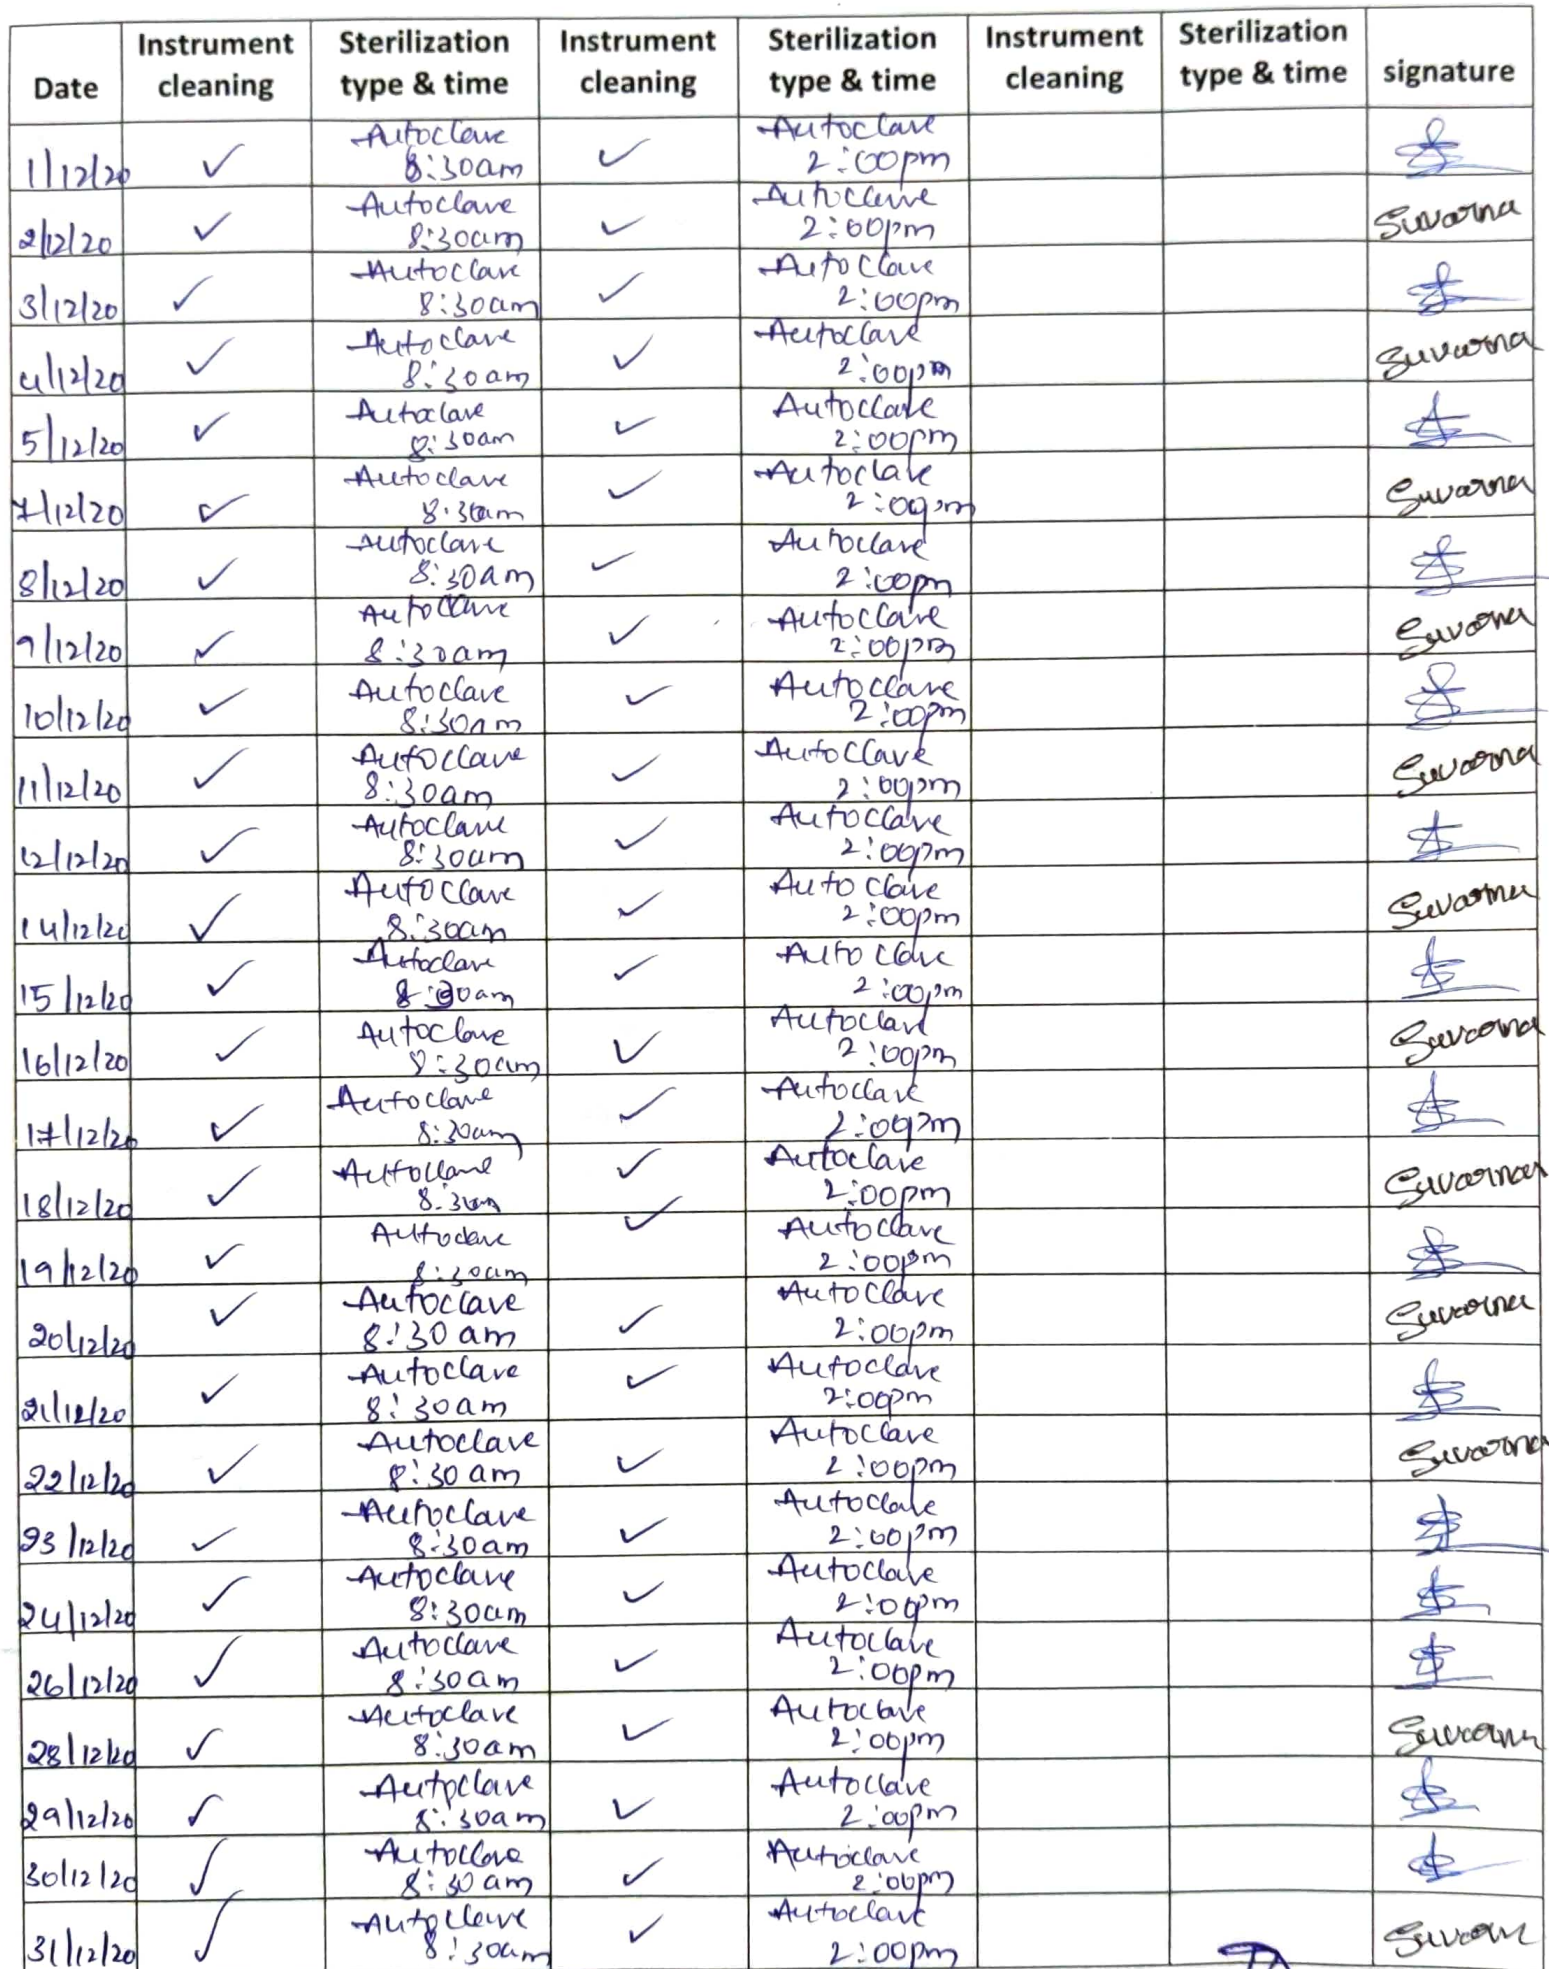 Date Instrument cleaning Sterilization type & time Instrument cleaning Sterilization type & time Instrument cleaning Sterilization type & time signature
1/12/20 ✓ Autoclave 8:30am ✓ Autoclave 2:00pm
2/12/20 ✓ Autoclave 8:30am ✓ Autoclave 2:00pm Suvarna
3/12/20 ✓ Autoclave 8:30am ✓ Autoclave 2:00pm
4/12/20 ✓ Autoclave 8:30am ✓ Autoclave 2:00pm Suvarna
5/12/20 ✓ Autoclave 8:30am ✓ Autoclave 2:00pm
7/12/20 ✓ Autoclave 8:30am ✓ Autoclave 2:00pm Suvarna
8/12/20 ✓ Autoclave 8:30am ✓ Autoclave 2:00pm
9/12/20 ✓ Autoclave 8:30am ✓ Autoclave 2:00pm Suvarna
10/12/20 ✓ Autoclave 8:30am ✓ Autoclave 2:00pm
11/12/20 ✓ Autoclave 8:30am ✓ Autoclave 2:00pm Suvarna
12/12/20 ✓ Autoclave 8:30am ✓ Autoclave 2:00pm
14/12/20 ✓ Autoclave 8:30am ✓ Autoclave 2:00pm Suvarna
15/12/20 ✓ Autoclave 8:30am ✓ Autoclave 2:00pm
16/12/20 ✓ Autoclave 8:30am ✓ Autoclave 2:00pm Suvarna
17/12/20 ✓ Autoclave 8:30am ✓ Autoclave 2:00pm
18/12/20 ✓ Autoclave 8:30am ✓ Autoclave 2:00pm Suvarna
19/12/20 ✓ Autoclave 8:30am ✓ Autoclave 2:00pm
20/12/20 ✓ Autoclave 8:30am ✓ Autoclave 2:00pm Suvarna
21/12/20 ✓ Autoclave 8:30am ✓ Autoclave 2:00pm
22/12/20 ✓ Autoclave 8:30am ✓ Autoclave 2:00pm Suvarna
23/12/20 ✓ Autoclave 8:30am ✓ Autoclave 2:00pm
24/12/20 ✓ Autoclave 8:30am ✓ Autoclave 2:00pm
26/12/20 ✓ Autoclave 8:30am ✓ Autoclave 2:00pm
28/12/20 ✓ Autoclave 8:30am ✓ Autoclave 2:00pm Suvarna
29/12/20 ✓ Autoclave 8:30am ✓ Autoclave 2:00pm
30/12/20 ✓ Autoclave 8:30am ✓ Autoclave 2:00pm
31/12/20 ✓ Autoclave 8:30am ✓ Autoclave 2:00pm Suvarna